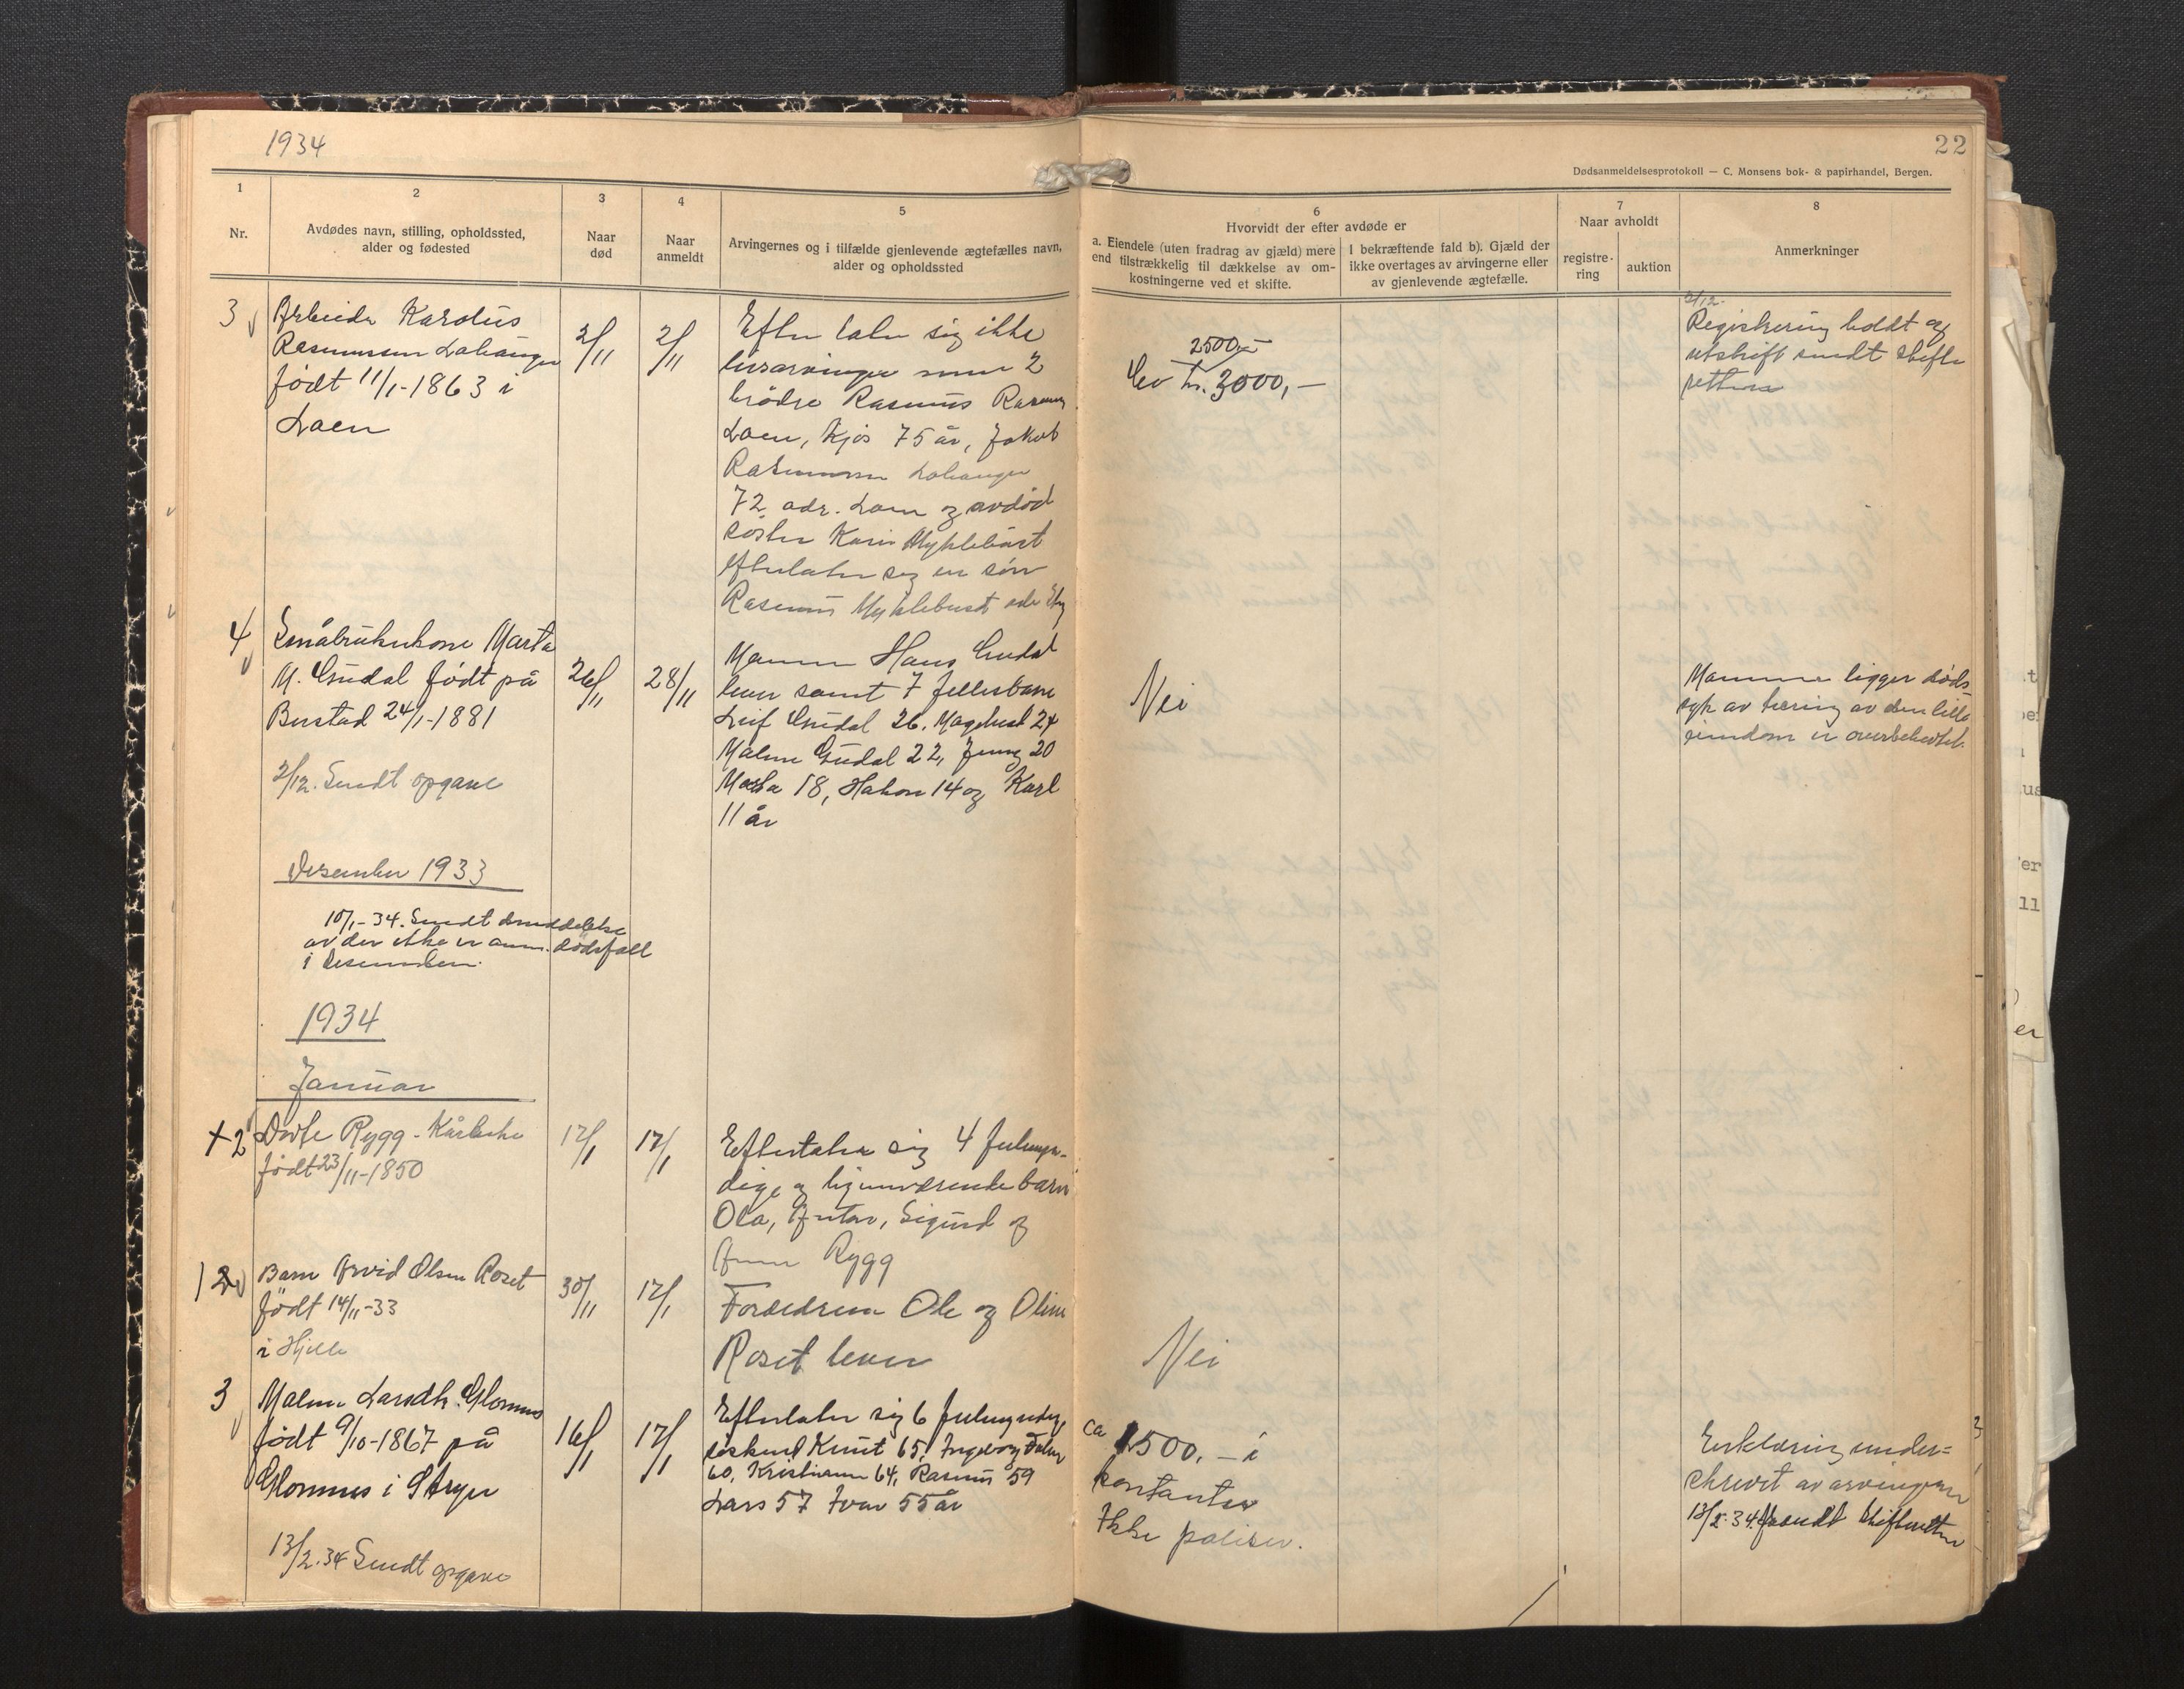 1934
22
Dødsanmeldelsesprotokoll — C. Monsens bok- & papirhandel, Bergen.
1
Nr.
2
Avdødes navn, stilling, opholdssted,
alder og fødested
3
Naar
død
4
Naar
anmeldt
5
Arvingernes og i tilfælde gjenlevende ægtefælles navn,
alder og opholdssted
6
Hvorvidt der efter avdøde er
a. Eiendele (uten fradrag av gjæld) mere
end tilstrækkelig til dækkelse av om-
kostningerne ved et skifte.
I bekræftende fald b). Gjæld der
ikke overtages av arvingerne eller
av gjenlevende ægtefælle.
7
Naar avholdt
registre-
ring
auktion
8
Anmerkninger
3
Arbeider Karolus
Rasmussen
født 11/1-1863 i
Loen
2/11
2/11
Efterlater sig ikke
livsarvinger men 2
brødre Rasmus
Loen, Kjøs 75 år, Jakob
Rasmussen
72 adr. Loen og avdød
søster Kari Myklebust
efterlater sig en sønn
Rasmus Myklebust
2500,-
kr. 3000,-
2/12-
Registrering holdt og
utskrift sendt skifte
retten
4
Småbrukerkone Marta
M. Gudal født på
Bustad 24/1-1881
2/12. Sendt opgave
26/11
28/11
Mannen Hans Gudal
lever samt 7 fellesbarn
Leif Gudal 26, 24
Malene Gudal 22, Jenny 20
Marta 18, Håkon 14 og Karl
11 år
Nei
Mannen ligger døds-
syk av tæring av den lille
eiendom er overbeheftet.
Desember 1933
10/1-34. Sendt
av der ikke er anm. dødsfall
i desember.
1934
Januar
+2
Dorte Rygg - Kårenke
født 23/11-1850
12/1
17/1
Efterlater sig 4 fulmyn-
dige og hjemværende barn
Ola, , Sigurd og
Anna Rygg
1
Barn Arvid Olsen Roset
født 14/11-33
i Hjelle
30/11
12/1
Foreldrene Ole og Oline
Roset lever
Nei
3
Malene Larsdtr. Glomnes
født 9/10-1867 på
Glomnes i Stryn
13/2.34 Sendt opgave
16/1
17/1
Efterlater sig 6 fulmyndige
søskend Knut 65, Ingeborg
60, Kristianne 64, Rasmus 59
Lars 57 Ivar 55 år
ca 1500,- i
kontanter
Ikke poliser.
Erklæring under-
skrevet av arvingene
13/2-34 sendt skifteretten